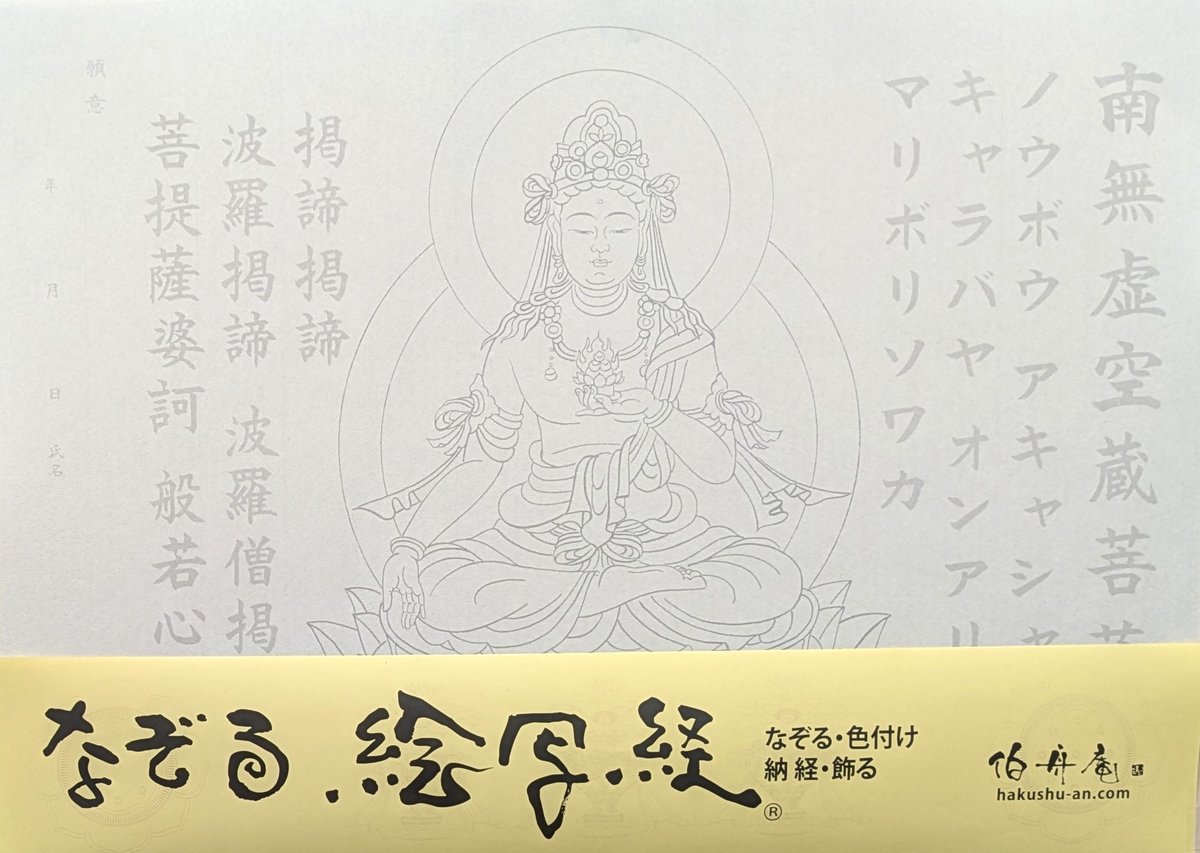 南無虚空蔵菩
ノウボウ アキャシャ
キャラバヤ オンアリ
マリボリソワカ
掲諦掲諦
波羅掲諦 波羅僧掲
菩提薩婆訶 般若心
願意
年 月 日 氏名
なぞる絵写経®
なぞる・色付け
納経・飾る
伯舟庵
hakushu-an.com